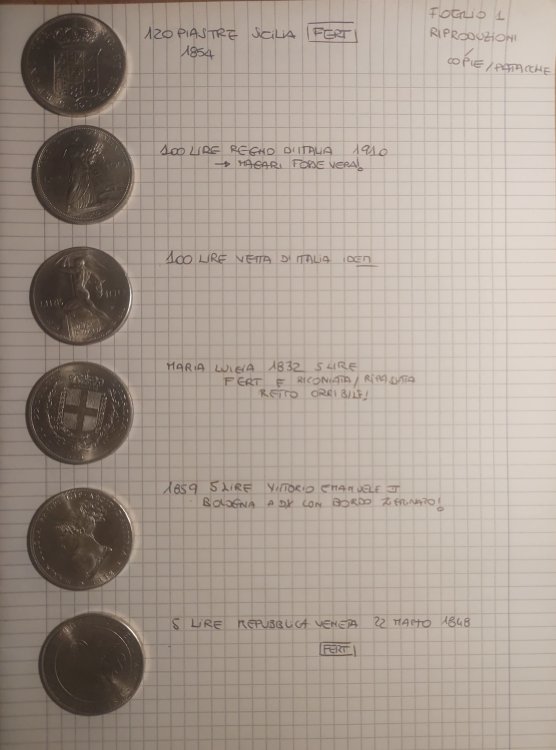 FOGLIO 1
RIPRODUZIONI
COPIE/PATACCHE
120 PIASTRE SCILIA FERT
1854
100 LIRE REGNO D'ITALIA 1910
→ MAGARI FOSSE VERA!
100 LIRE VETTA D'ITALIA IDEM
MARIA LUIGIA 1832 5 LIRE
FERT E RICONIATA/RIPASSATA
RETTO ORRIBILE!
1859 5 LIRE VITTORIO EMANUELE II
BOLOGNA A DX CON BORDO ZIGRINATO!
5 LIRE REPUBBLICA VENETA 22 MARZO 1848
FERT